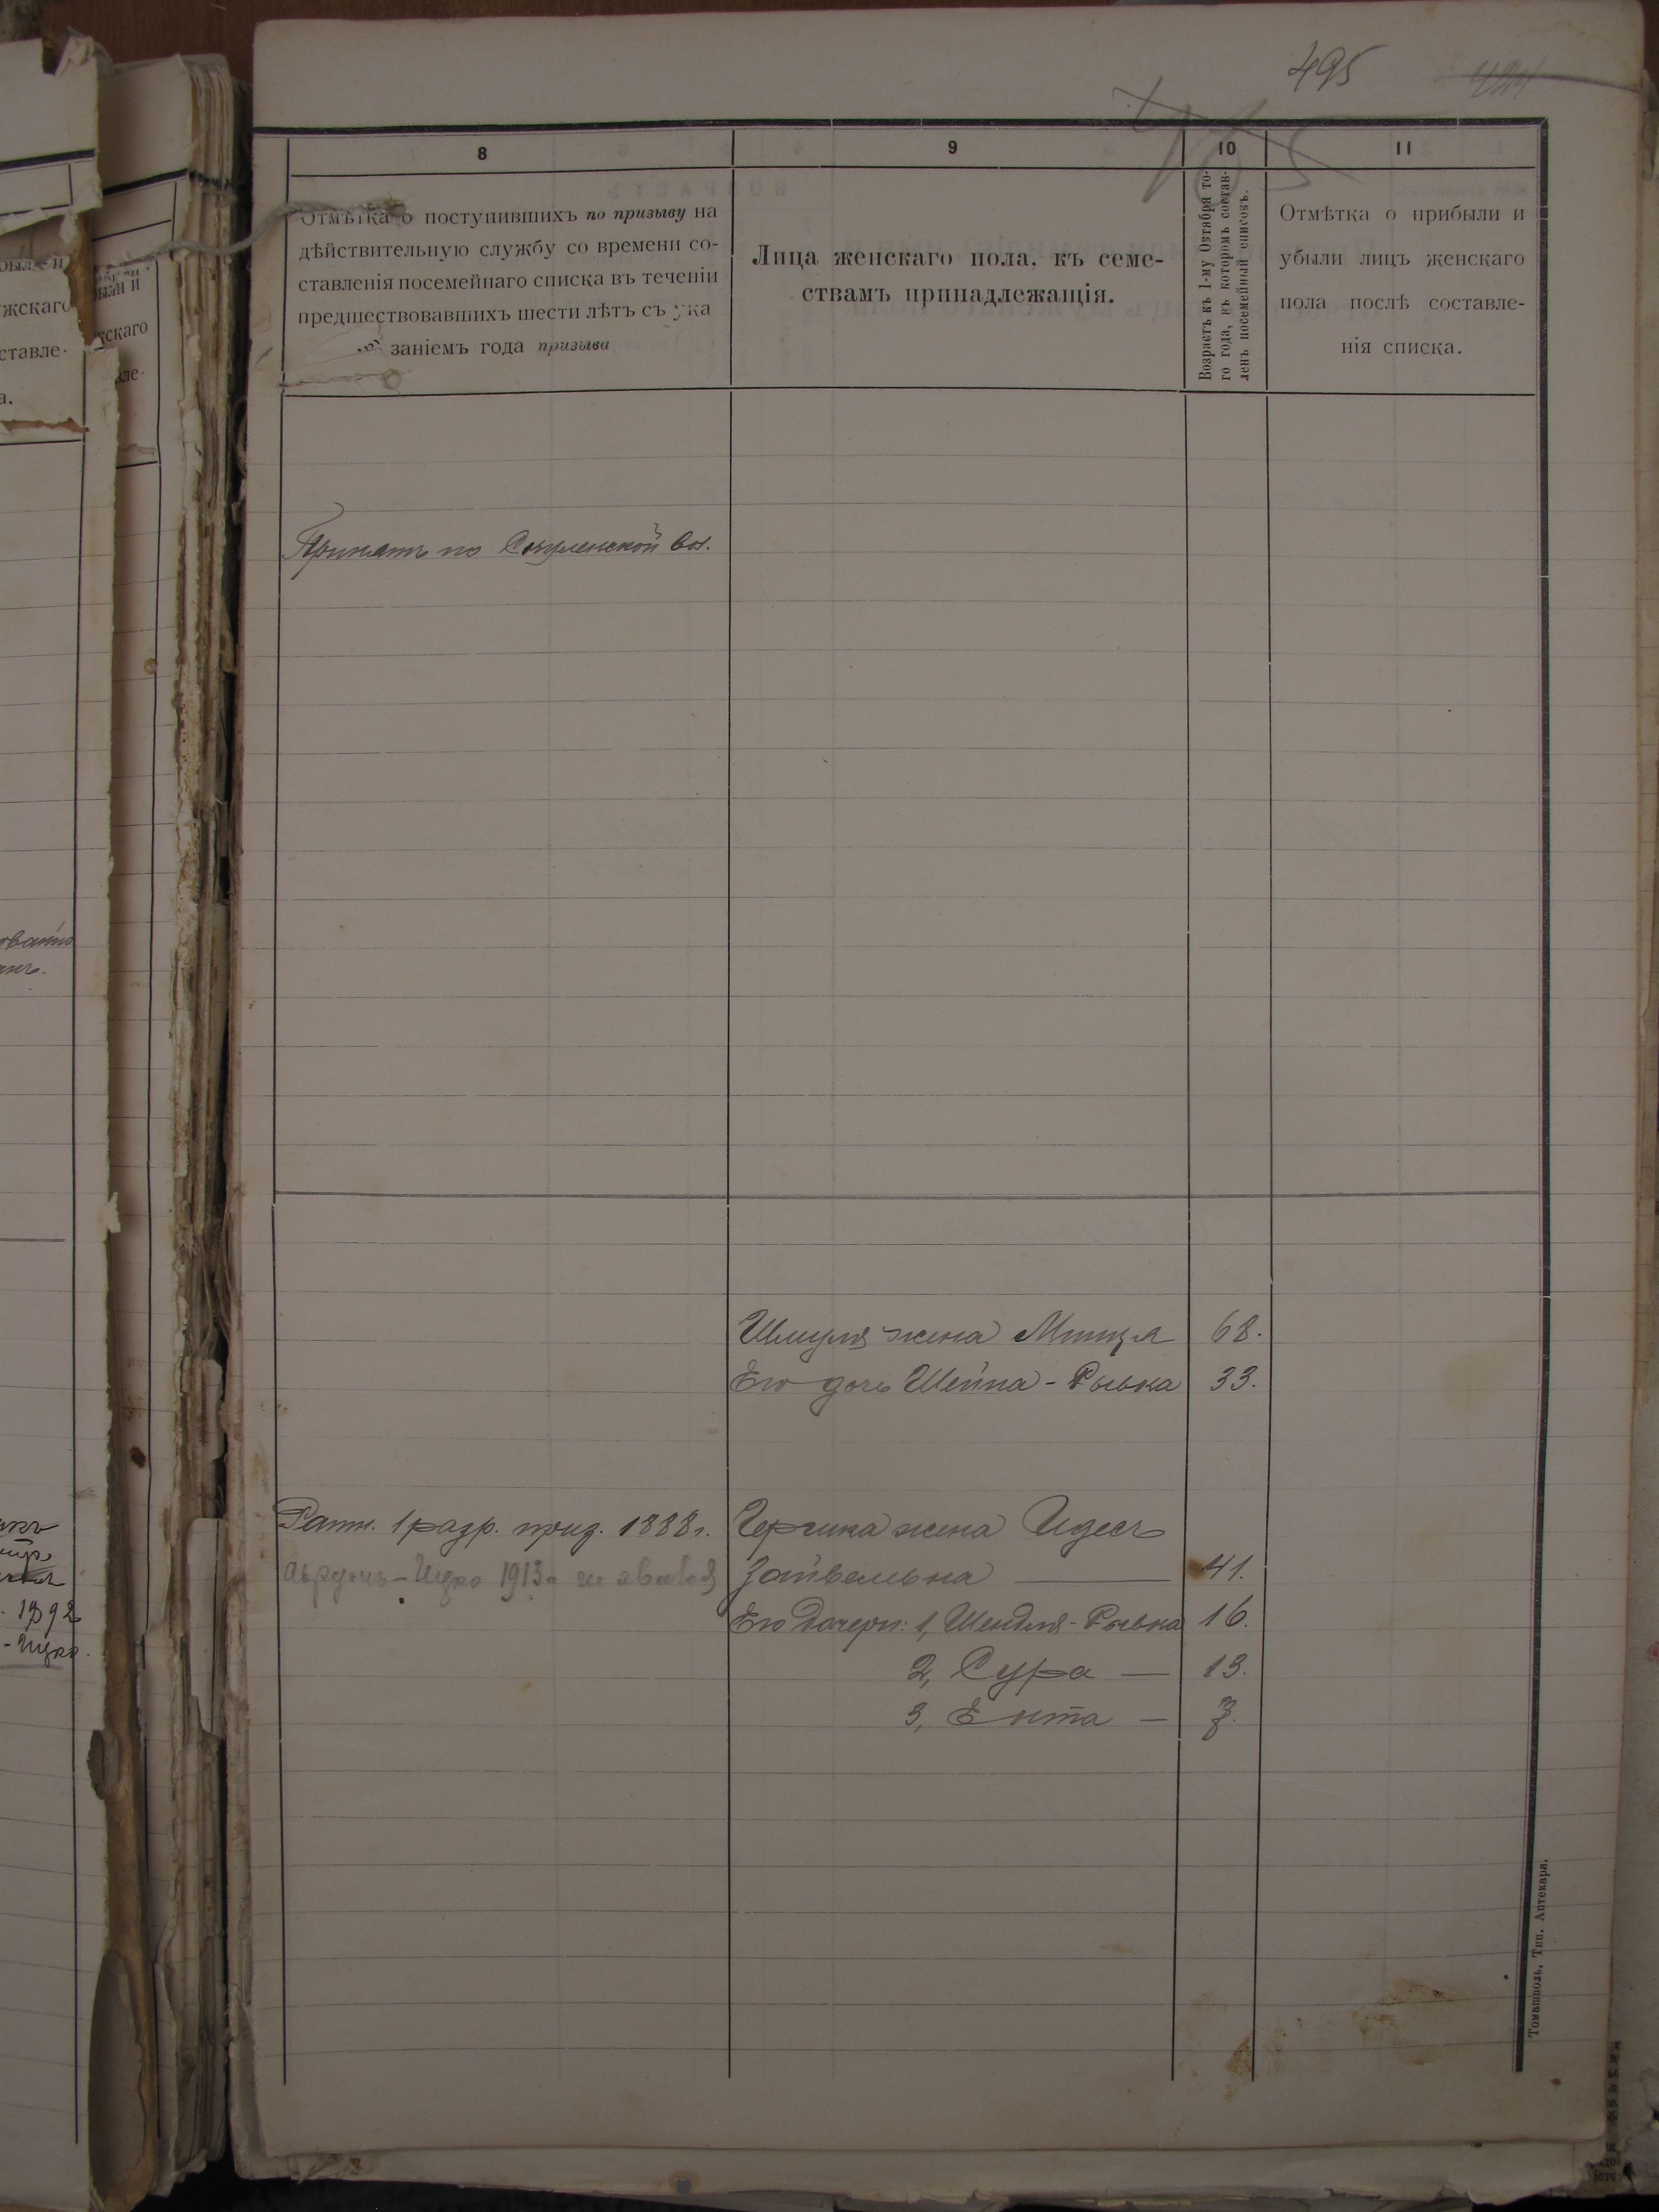 495
8
9
10
11
Отмѣтка о поступившихъ по призыву на
дѣйствительную службу со времени со-
ставленія посемейнаго списка въ теченіи
предшествовавшихъ шести лѣтъ съ ука
заніемъ года призыва
Лица женскаго пола, къ семе-
ствамъ принадлежащія.
Возрастъ къ 1-му Октября то-
го года, въ которомъ состав-
ленъ посемейный списокъ.
Отмѣтка о прибыли и
убыли лицъ женскаго
пола послѣ составле-
нія списка.
Принятъ по вол.
Шмуля жена 68.
Его дочь Шейна-Рывка 33.
Ратн. 1 разр. приз. 1888 г.
Гершка жена Идесъ
-Ицко 1913 г. не явился
Зойвельвна — 41.
Его дочери: 1, Шендля-Рывка 16.
2, Сура — 13.
3, Ента —
Томашполь, Тип. Аптекаря.
жскаго
ставле-
а.
1892
-Ицко.